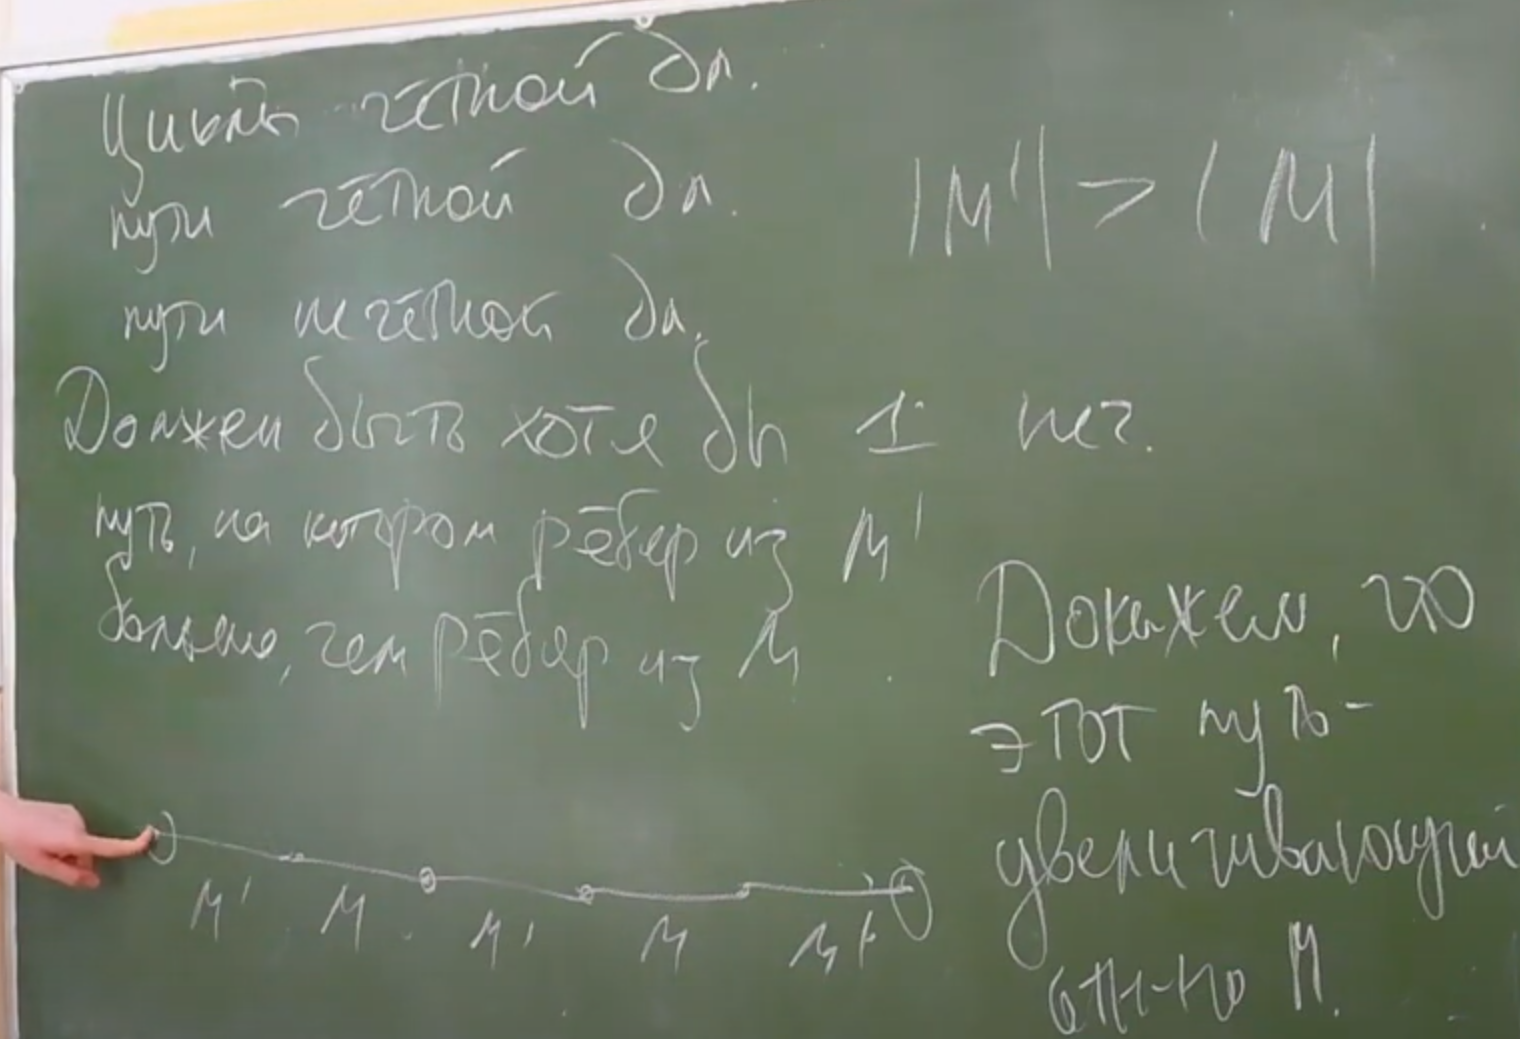 Циклы чётной дл.
пути чётной дл.
пути нечётной дл.
|M'| > |M|
Должен быть хотя бы 1 неч.
путь, на котором рёбер из M'
больше, чем рёбер из M.
Докажем, что
этот путь -
увеличивающий
отн-но M.
M' M M' M M'